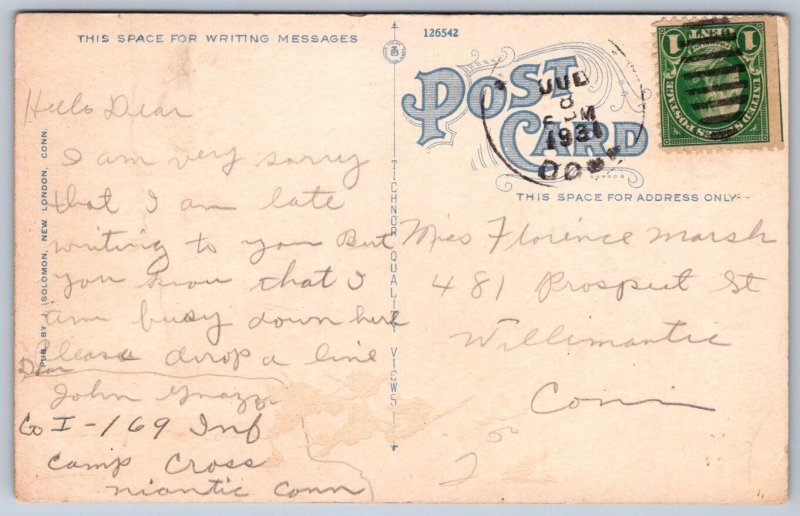 THIS SPACE FOR WRITING MESSAGES
126542
POST CARD
THIS SPACE FOR ADDRESS ONLY
JUL
8
M
1931
CONN
1 CENT 1
Hello Dear
I am very sorry
that I am late
writing to you But
you know that I
am busy down here
Please drop a line
Dear
John
Co I-169 Inf
Camp Cross
Niantic Conn
Miss Florence Marsh
481 Prospect St
Willimantic
Conn
PUB. BY J. SOLOMON, NEW LONDON, CONN.
TICHNOR QUALITY VIEWS